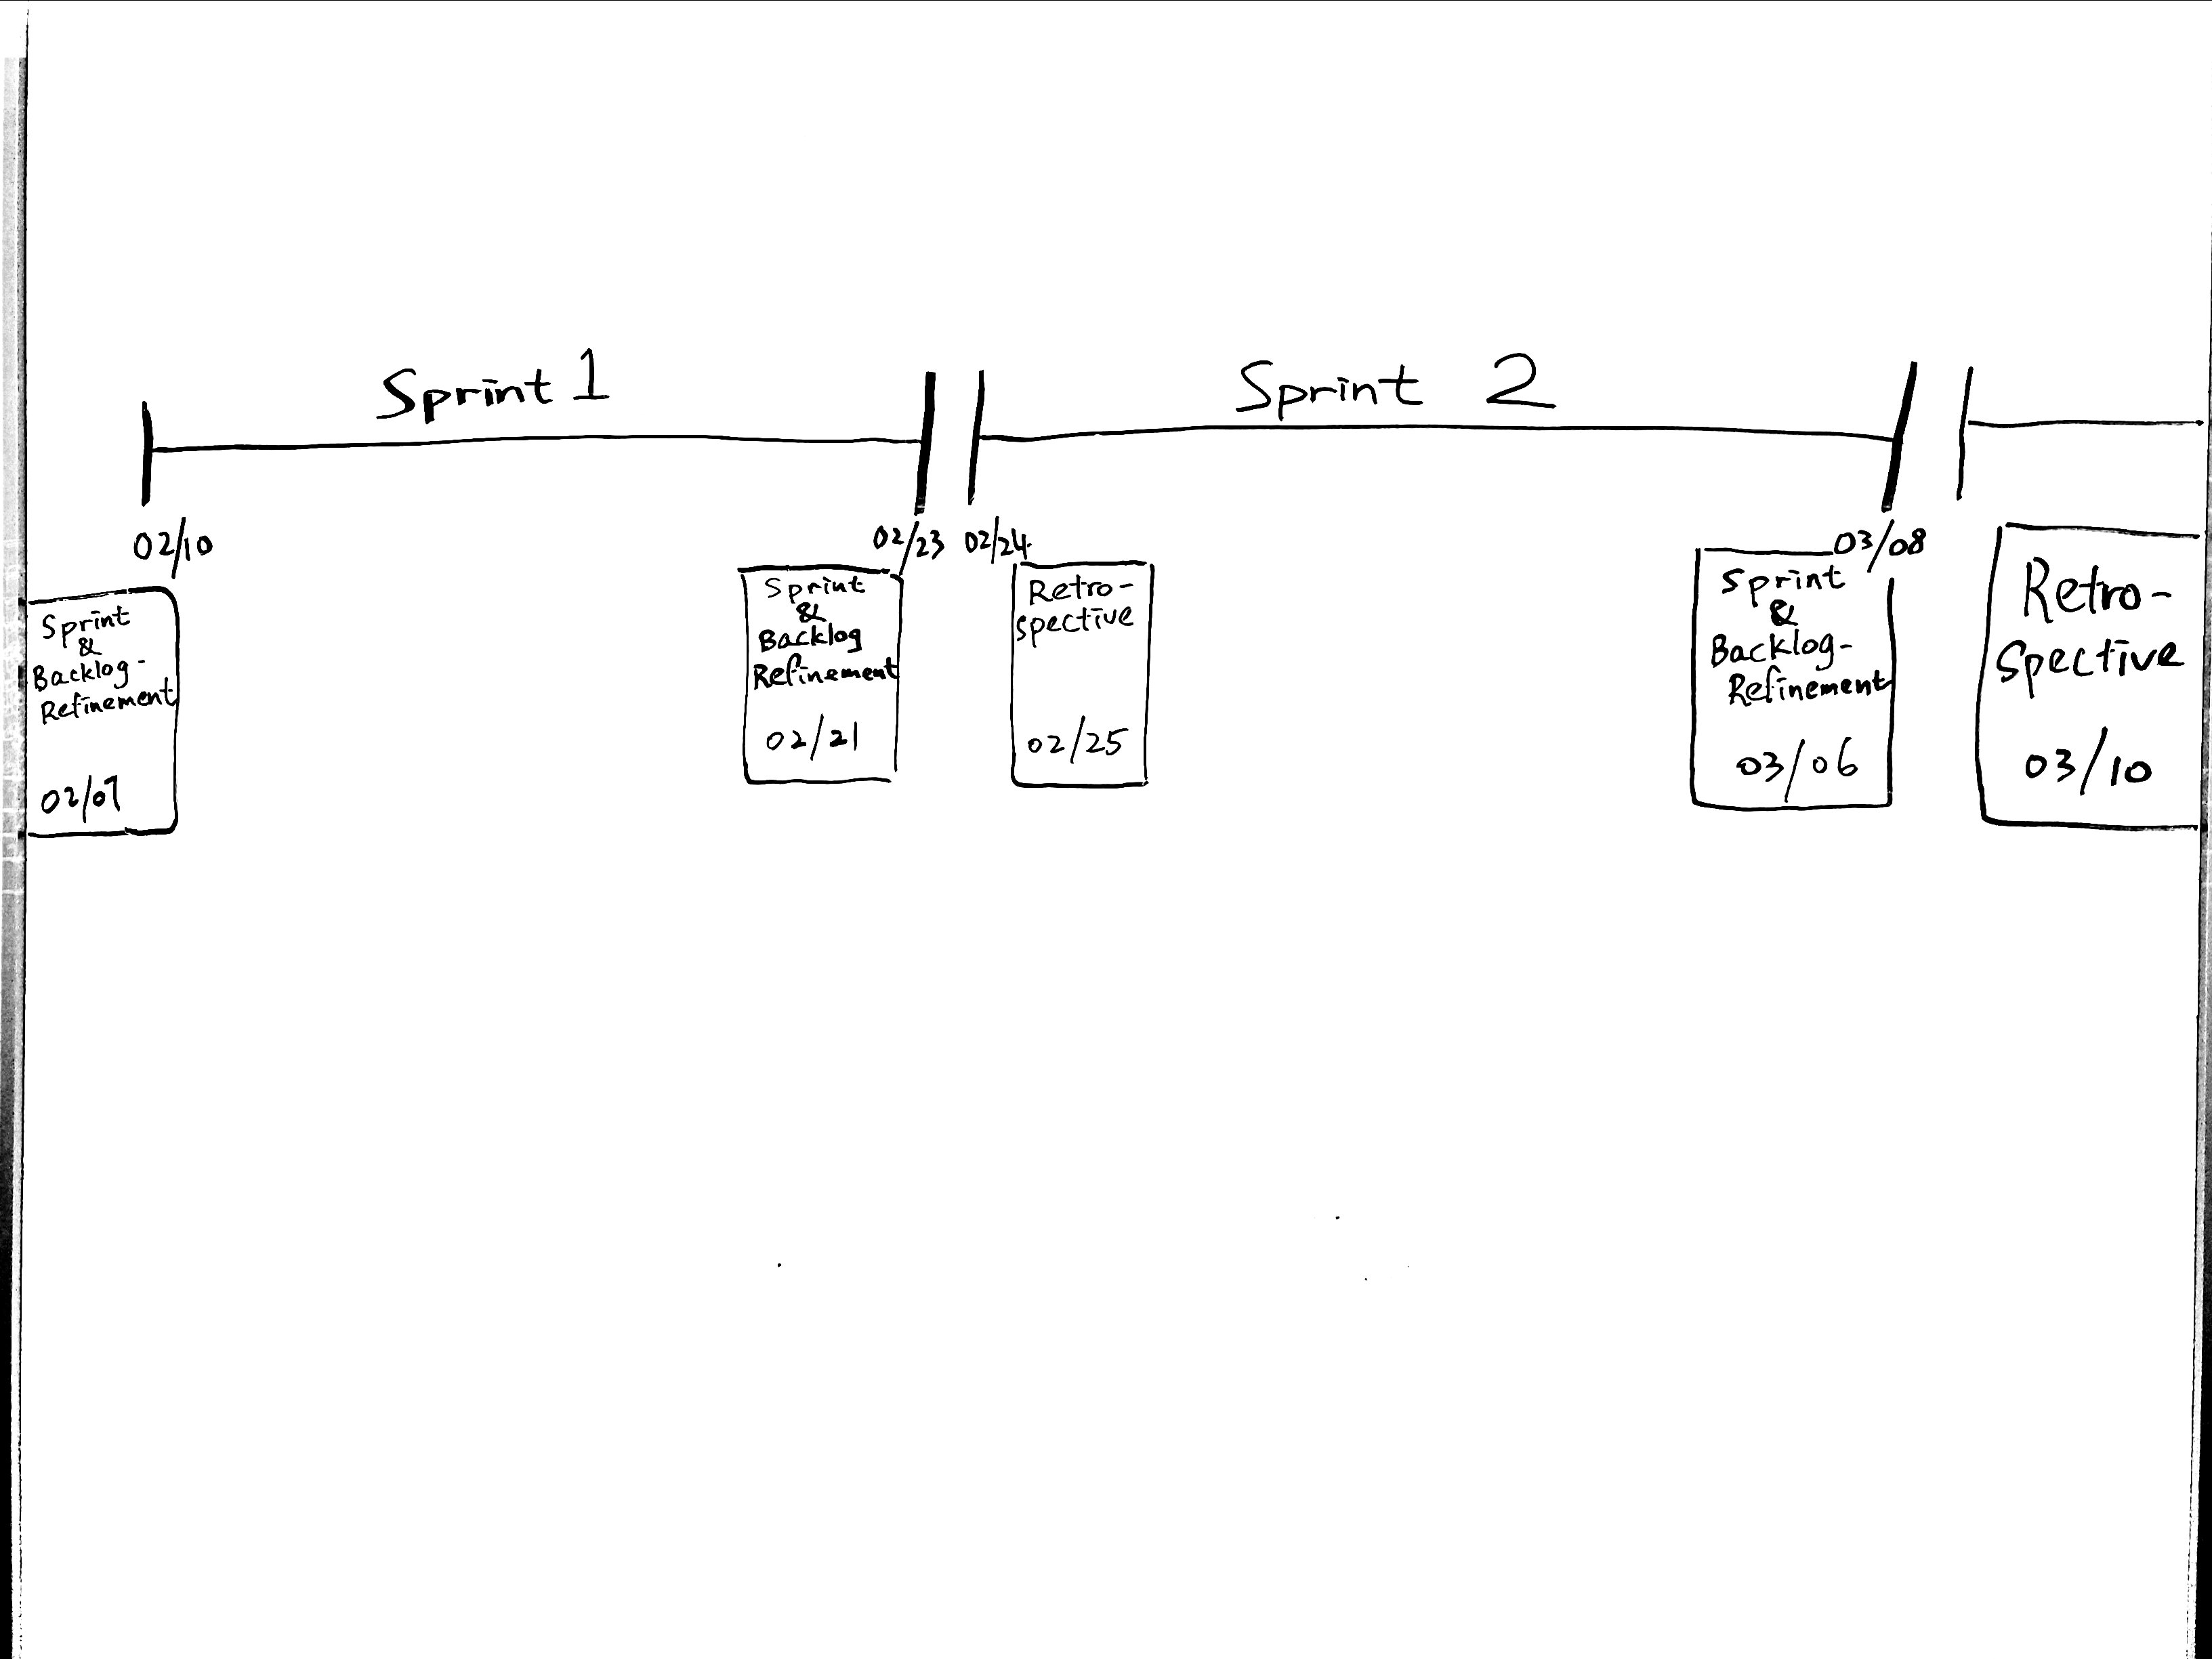 Sprint 1
Sprint 2
02/10
02/23
02/24
03/08
Sprint
&
Backlog-
Refinement
02/07
Sprint
&
Backlog
Refinement
02/21
Retro-
spective
02/25
Sprint
&
Backlog-
Refinement
03/06
Retro-
spective
03/10